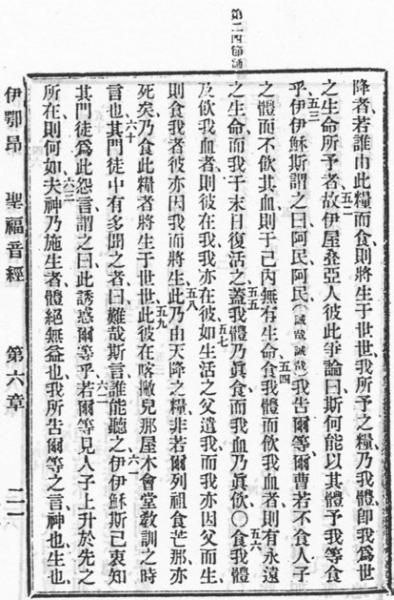 第二四節誦
降者若誰由此糧而食則將生于世世我所予之糧乃我體卽我爲世
之生命所予者五二故伊屋叠亞人彼此爭論曰斯何能以其體予我等食
乎五三伊伊穌斯謂之曰阿民阿民(誠哉誠哉)我告爾等爾曹若不食人子
之體而不飲其血則于己內無有生命五四食我體而飲我血者則有永遠
之生命而我于末日復活之五五蓋我體乃眞食而我血乃眞飲○五六食我體
及飲我血者則彼在我我亦在彼五七如生活之父遣我而我亦因父而生
則食我者彼亦因我而將生五八此乃由天降之糧非若爾列祖食芒那亦
死矣乃食此糧者將生于世世五九此彼在喀撇兒那屋木會堂敎訓之時
言也六十其門徒中有多聞之者曰難哉斯言誰能聽之六一伊伊穌斯己衷知
其門徒爲此怨言謂之曰此誘惑爾等乎六二若爾等見人子上升於先之
所在則何如六三夫神乃施生者體絕無益也我所告爾等之言神也生也
伊鄂昂　聖福音經　第六章　二一